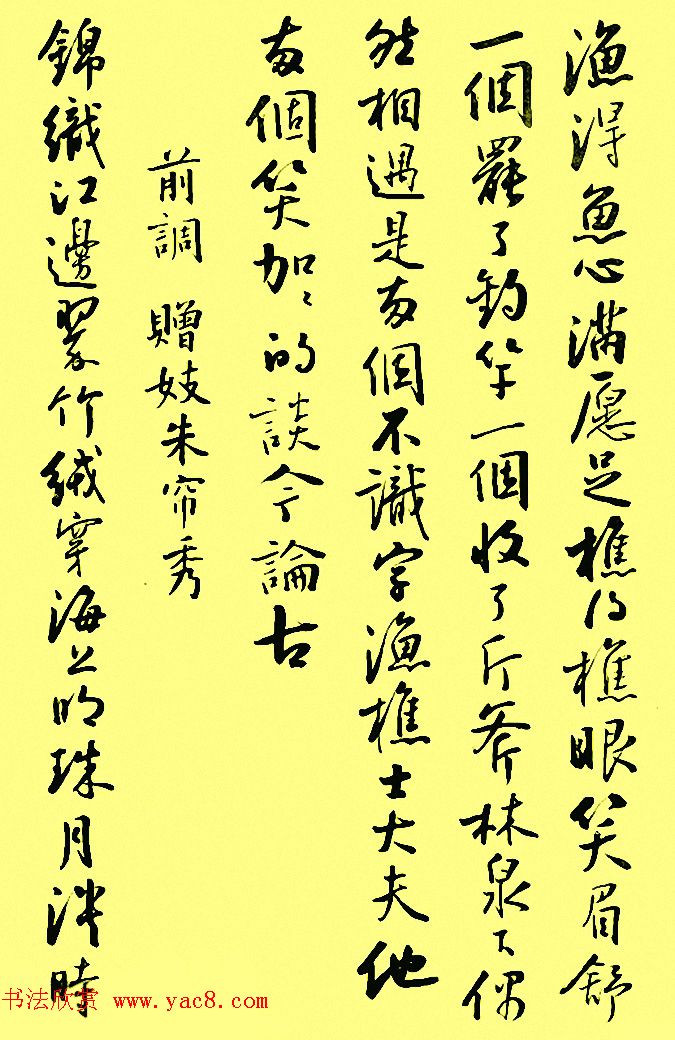 漁得魚心滿愿足樵得樵眼笑眉舒
一個罷了釣竿一個收了斤斧林泉下偶
然相遇是两個不識字漁樵士大夫他
两個笑加々的談今論古
前調 贈妓朱帘秀
錦織江邊翠竹絨穿海上明珠月淡時
书法欣赏 www.yac8.com